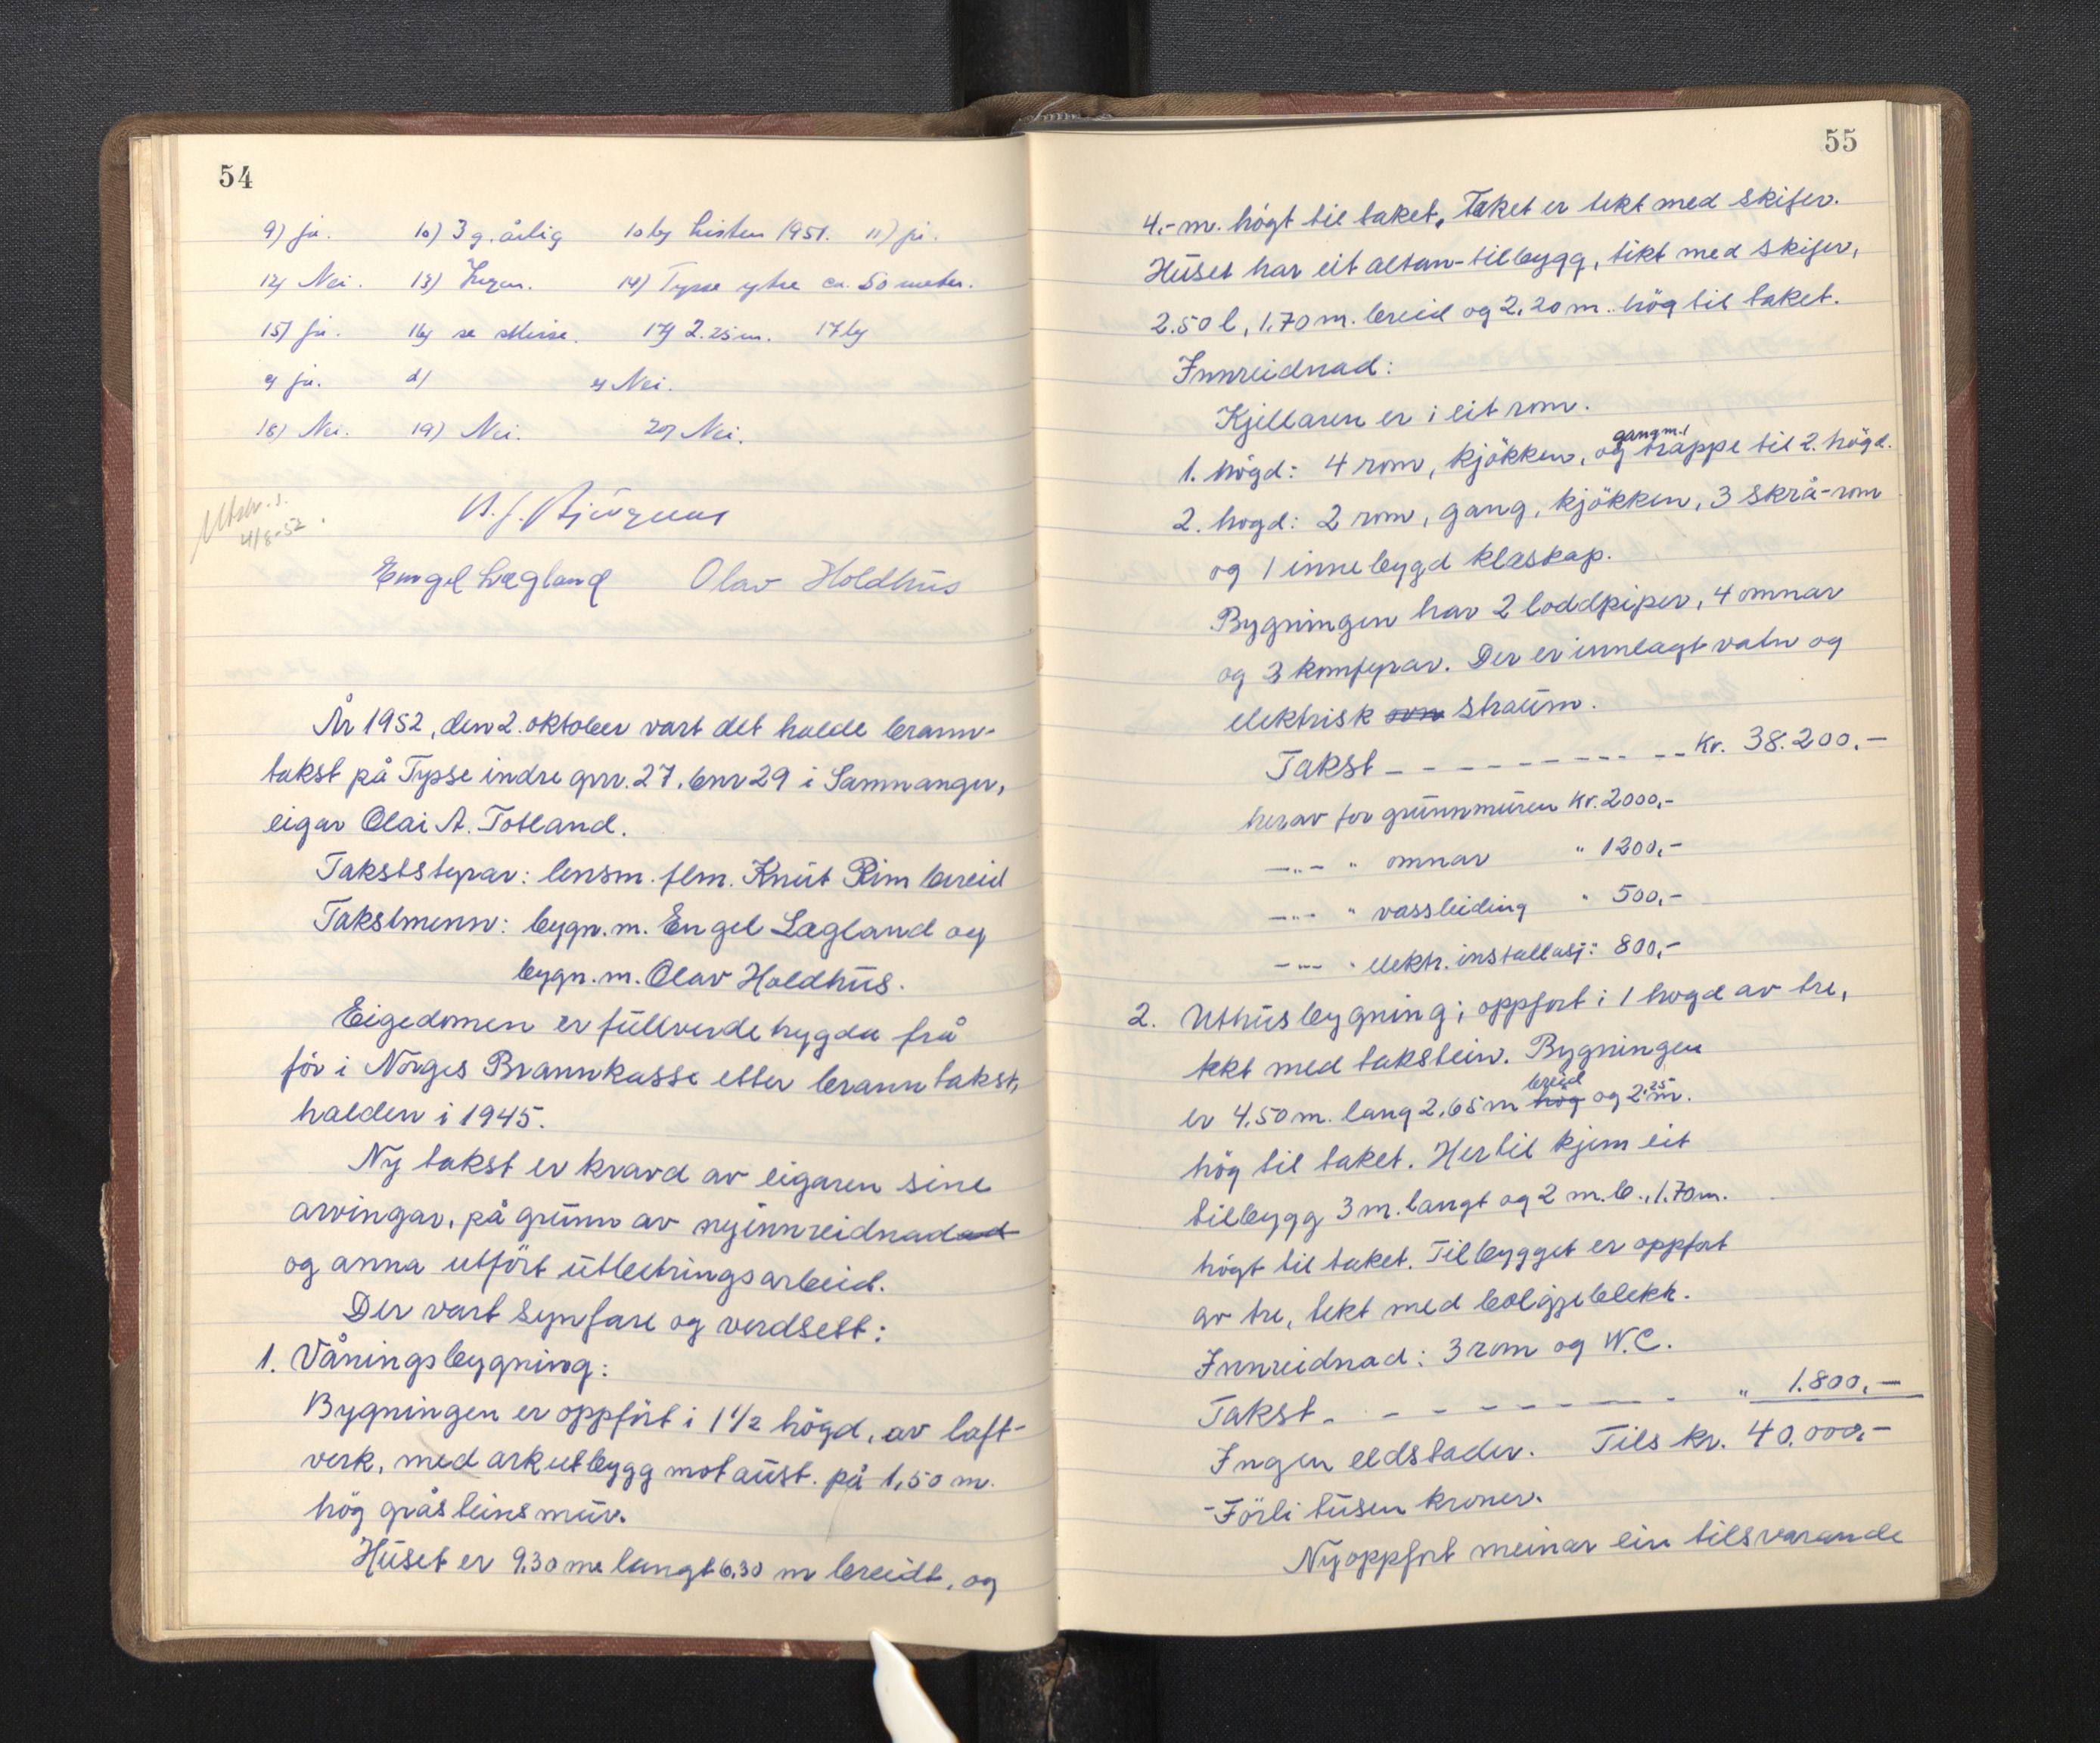 54
9) ja. 10) 3 g. årlig 10b) hösten 1951. 11) ja.
12) Nei. 13) Ingen. 14) Tysse ytre ca. 50 meter.
15) ja. 16) se skisse. 17) 2.25 m. 17b)
c) ja. d) e) Nei.
18) Nei. 19) Nei. 20) Nei.
Utskr. s.
4/8-52.
Engel Lægland Olav Holdhus
År 1952, den 2. oktober vart det halde brann-
takst på Tysse indre gnr. 27, bnr 29 i Samnanger,
eigar Olai A. Totland.
Takststyrar: lensm. flm. Knut Rimbereid
Takstmenn: bygn. m. Engel Lægland og
bygn. m. Olav Holdhus.
Eigedomen er fullverdetrygda frå
för i Norges Brannkasse etter branntakst,
halden i 1945.
Ny takst er kravd av eigaren sine
arvingar, på grunn av nyinnreidnad
og anna utfört utbetringsarbeid.
Der vart synfare og verdsett:
1. Våningsbygning:
Bygningen er oppfört i 1 1/2 högd, av laft-
verk, med arkutbygg mot aust. på 1,50 m.
hög gråsteinsmur.
Huset er 9.30 m langt 6.30 m breidt, og
55
4.- m. högt til taket. Taket er tekt med skifer.
Huset har eit altan-tilbygg, tekt med skifer,
2.50 l, 1.70 m. breid og 2.20 m. hög til taket.
Innreidnad:
Kjellaren er i eit rom.
1. högd: 4 rom, kjökken, og gang m/ trappe til 2. högd.
2. hogd: 2 rom, gang, kjökken, 3 skrå-rom
og 1 innebygd klæskap.
Bygningen har 2 loddpiper, 4 omnar
og 3 komfyrar. Der er innlagt vatn og
elektrisk ovn straum.
Takst - - - - - - - - - - - kr. 38.200.-
herav for grunnmuren kr. 2000,-
-"- " omnar " 1200,-
-"- " vassleiding " 500,-
-"- " elektr. installasj: 800,-
2. Uthusbygning; oppfort i 1 hogd av tre,
tekt med takstein. Bygningen
er 4.50 m. lang 2.65 m hög breid og 2.25 m.
hög til taket. Hertil kjem eit
tilbygg 3 m. langt og 2 m. b., 1.70 m.
högt til taket. Tilbygget er oppfort
av tre, tekt med bolgjeblekk.
Innreidnad: 3 rom og W.C.
Takst - - - - - - - - - " 1.800,-
Ingen eldstader. Tils kr. 40.000,-
- Förti tusen kroner.
Nyoppfort meinar ein tilsvarande